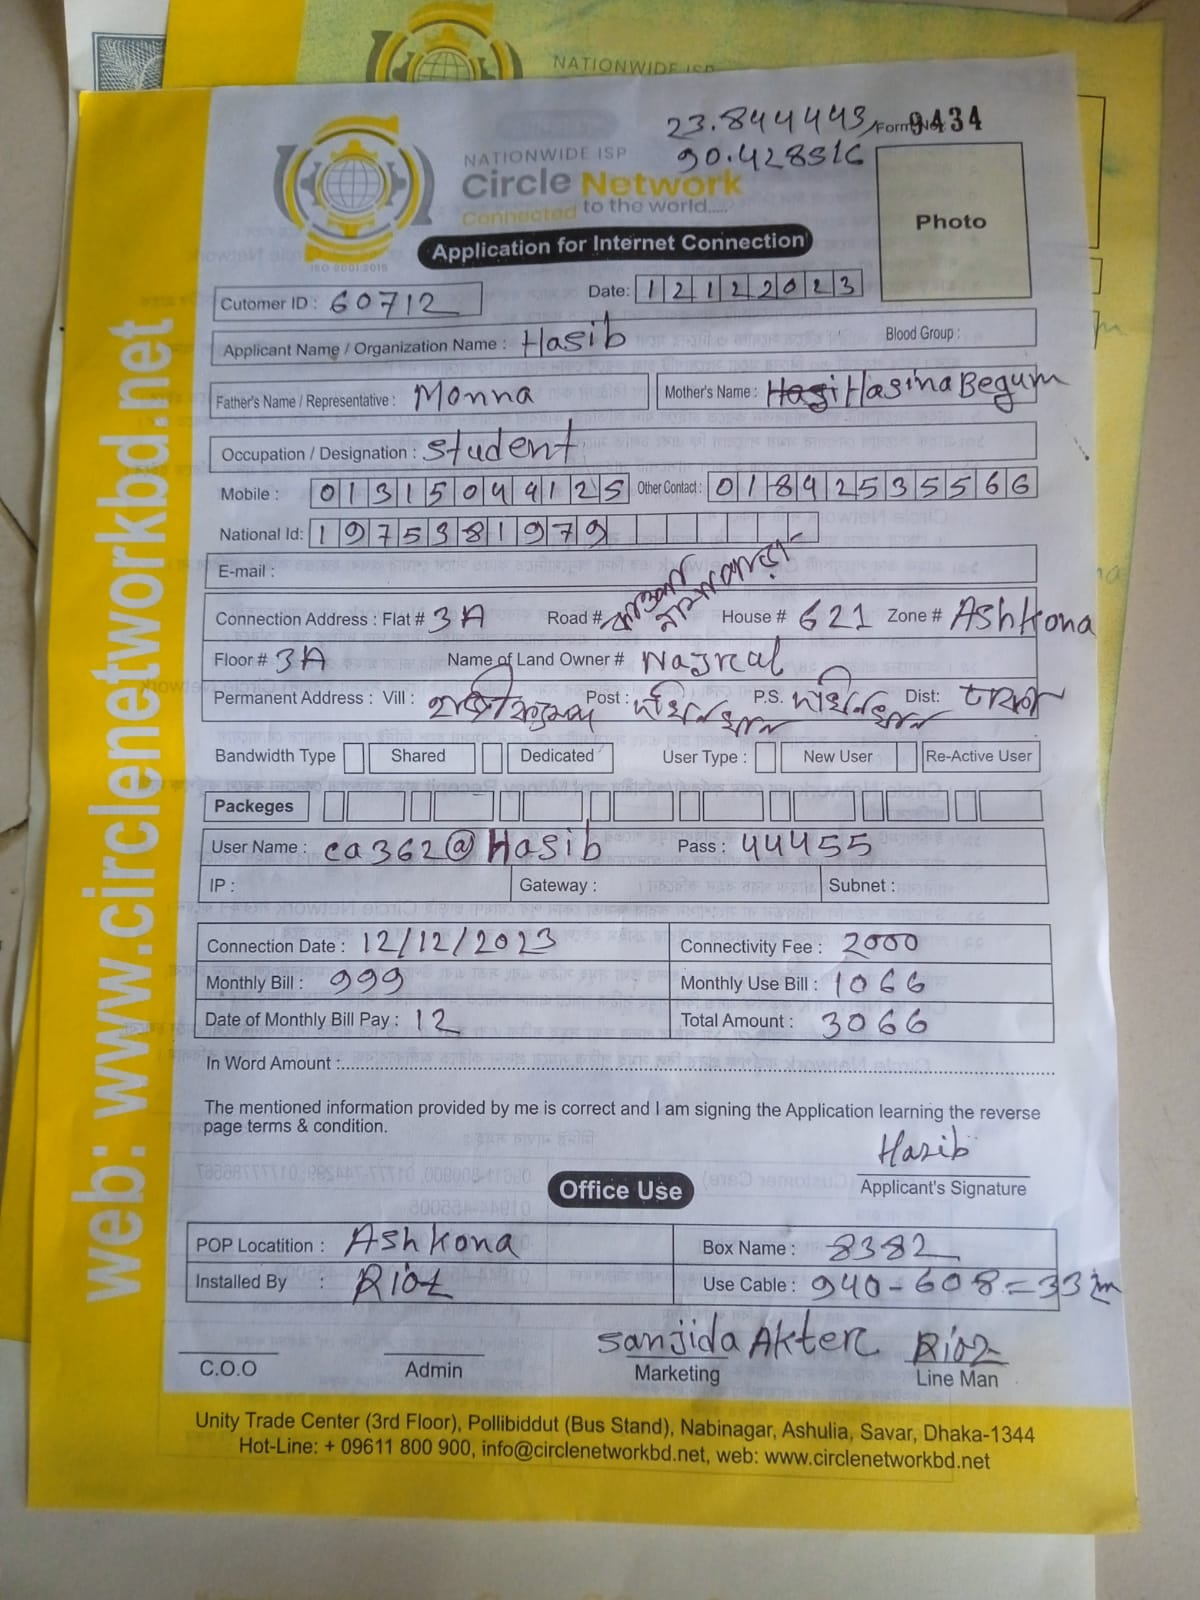 NATIONWIDE ISP
23.844443, Form No: 9434
90.428516
NATIONWIDE ISP
Circle Network
Connected to the world.....
ISO 9001:2015
Photo
Application for Internet Connection
Cutomer ID : 60712 Date: 12122023
Applicant Name / Organization Name : Hasib Blood Group :
Father's Name / Representative : Monna Mother's Name : Hasina Begum
Occupation / Designation : Student
Mobile : 01315044125 Other Contact : 01842535566
National Id: 1975381979
E-mail :
Connection Address : Flat # 3A Road # House # 621 Zone # Ashkona
Floor # 3A Name of Land Owner # Najrul
Permanent Address : Vill : Post : দক্ষিনখান P.S. দক্ষিনখান Dist: ঢাকা
Bandwidth Type Shared Dedicated User Type : New User Re-Active User
Packeges
User Name : ca362@Hasib Pass : 44455
IP : Gateway : Subnet :
Connection Date : 12/12/2023 Connectivity Fee : 2000
Monthly Bill : 999 Monthly Use Bill : 1066
Date of Monthly Bill Pay : 12 Total Amount : 3066
In Word Amount :
The mentioned information provided by me is correct and I am signing the Application learning the reverse
page terms & condition.
Hasib
Applicant's Signature
Office Use
POP Locatition : Ashkona Box Name : 8382
Installed By : Rioz Use Cable : 940-608=33 m
Sanjida Akter Rioz
C.O.O Admin Marketing Line Man
Unity Trade Center (3rd Floor), Pollibiddut (Bus Stand), Nabinagar, Ashulia, Savar, Dhaka-1344
Hot-Line: + 09611 800 900, info@circlenetworkbd.net, web: www.circlenetworkbd.net
web: www.circlenetworkbd.net